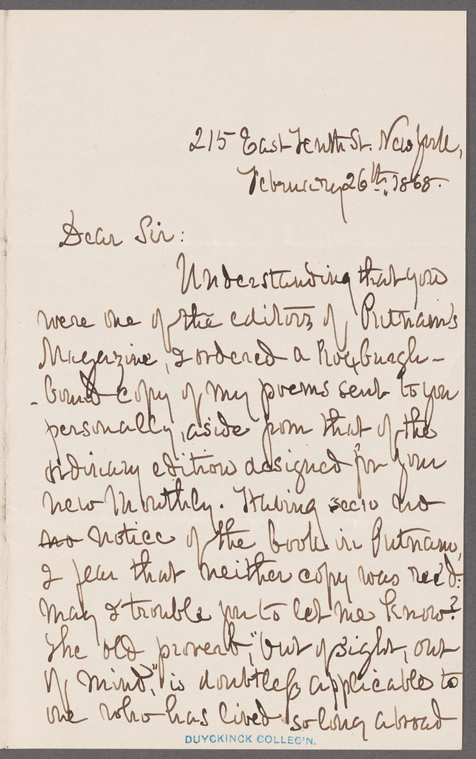 215 East Tenth St. New York,
February 26th, 1868.
Dear Sir:
Understanding that you
were one of the editors of Putnam's
Magazine, I ordered a Roxburgh-
-bound copy of my poems sent to you
personally, aside from that of the
ordinary edition designed for your
new Monthly. Having seen no
no notice of the book in Putnam,
I fear that neither copy was rec'd:
may I trouble you to let me know?
The old proverb "out of sight, out
of mind," is doubtless applicable to
one who has lived so long abroad
DUYCKINCK COLLEC'N.